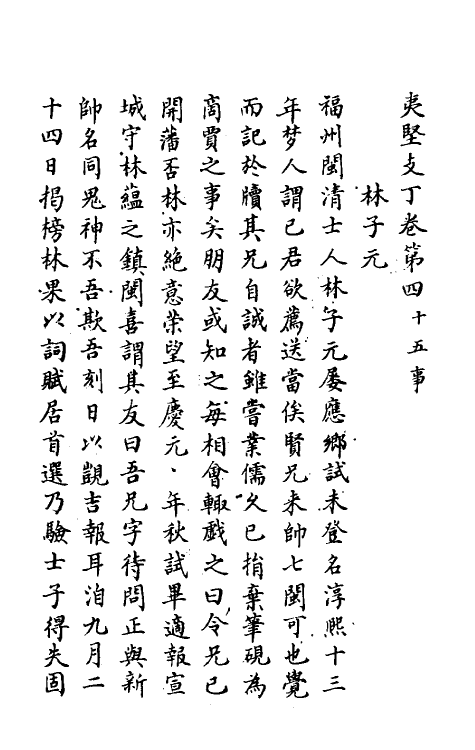 夷堅支丁卷第四十五事
林子元
福州閩清士人林子元屡應鄉試未登名淳熙十三
年梦人謂已君欲薦送當俟賢兄来帥七閩可也覺
而記於牘其兄自誠者雖嘗業儒久已捐棄筆硯為
商賈之事矣朋友或知之每相會輙戯之曰令兄已
開藩否林亦絶意荣望至慶元、年秋試畢適報宣
城守林蘊之鎮閩喜謂其友曰吾兄字待問正與新
帥名同鬼神不吾欺吾刻日以觀吉報耳洎九月二
十四日揭榜林果以詞賦居首選乃驗士子得失固